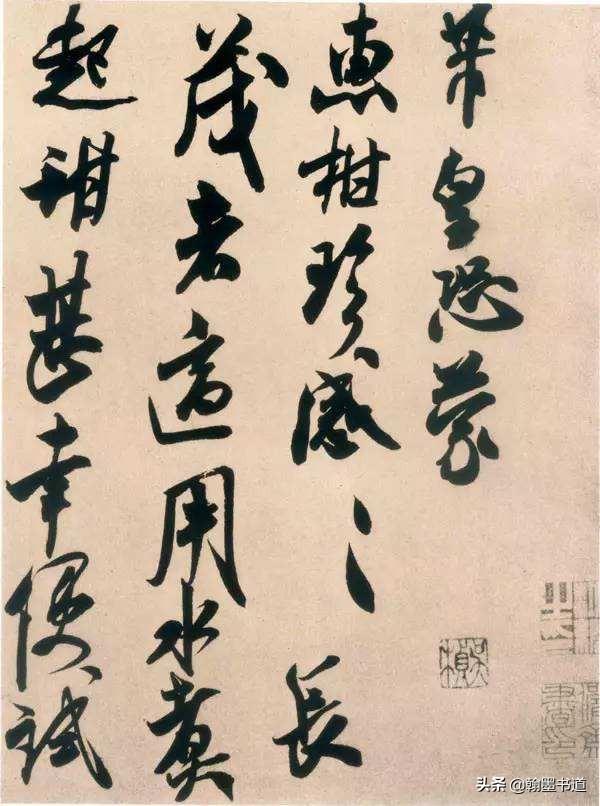 芾皇恐蒙
惠柑珍感〻〻長
茂者適用水煮
起甜甚幸便試
头条 @翰墨书道